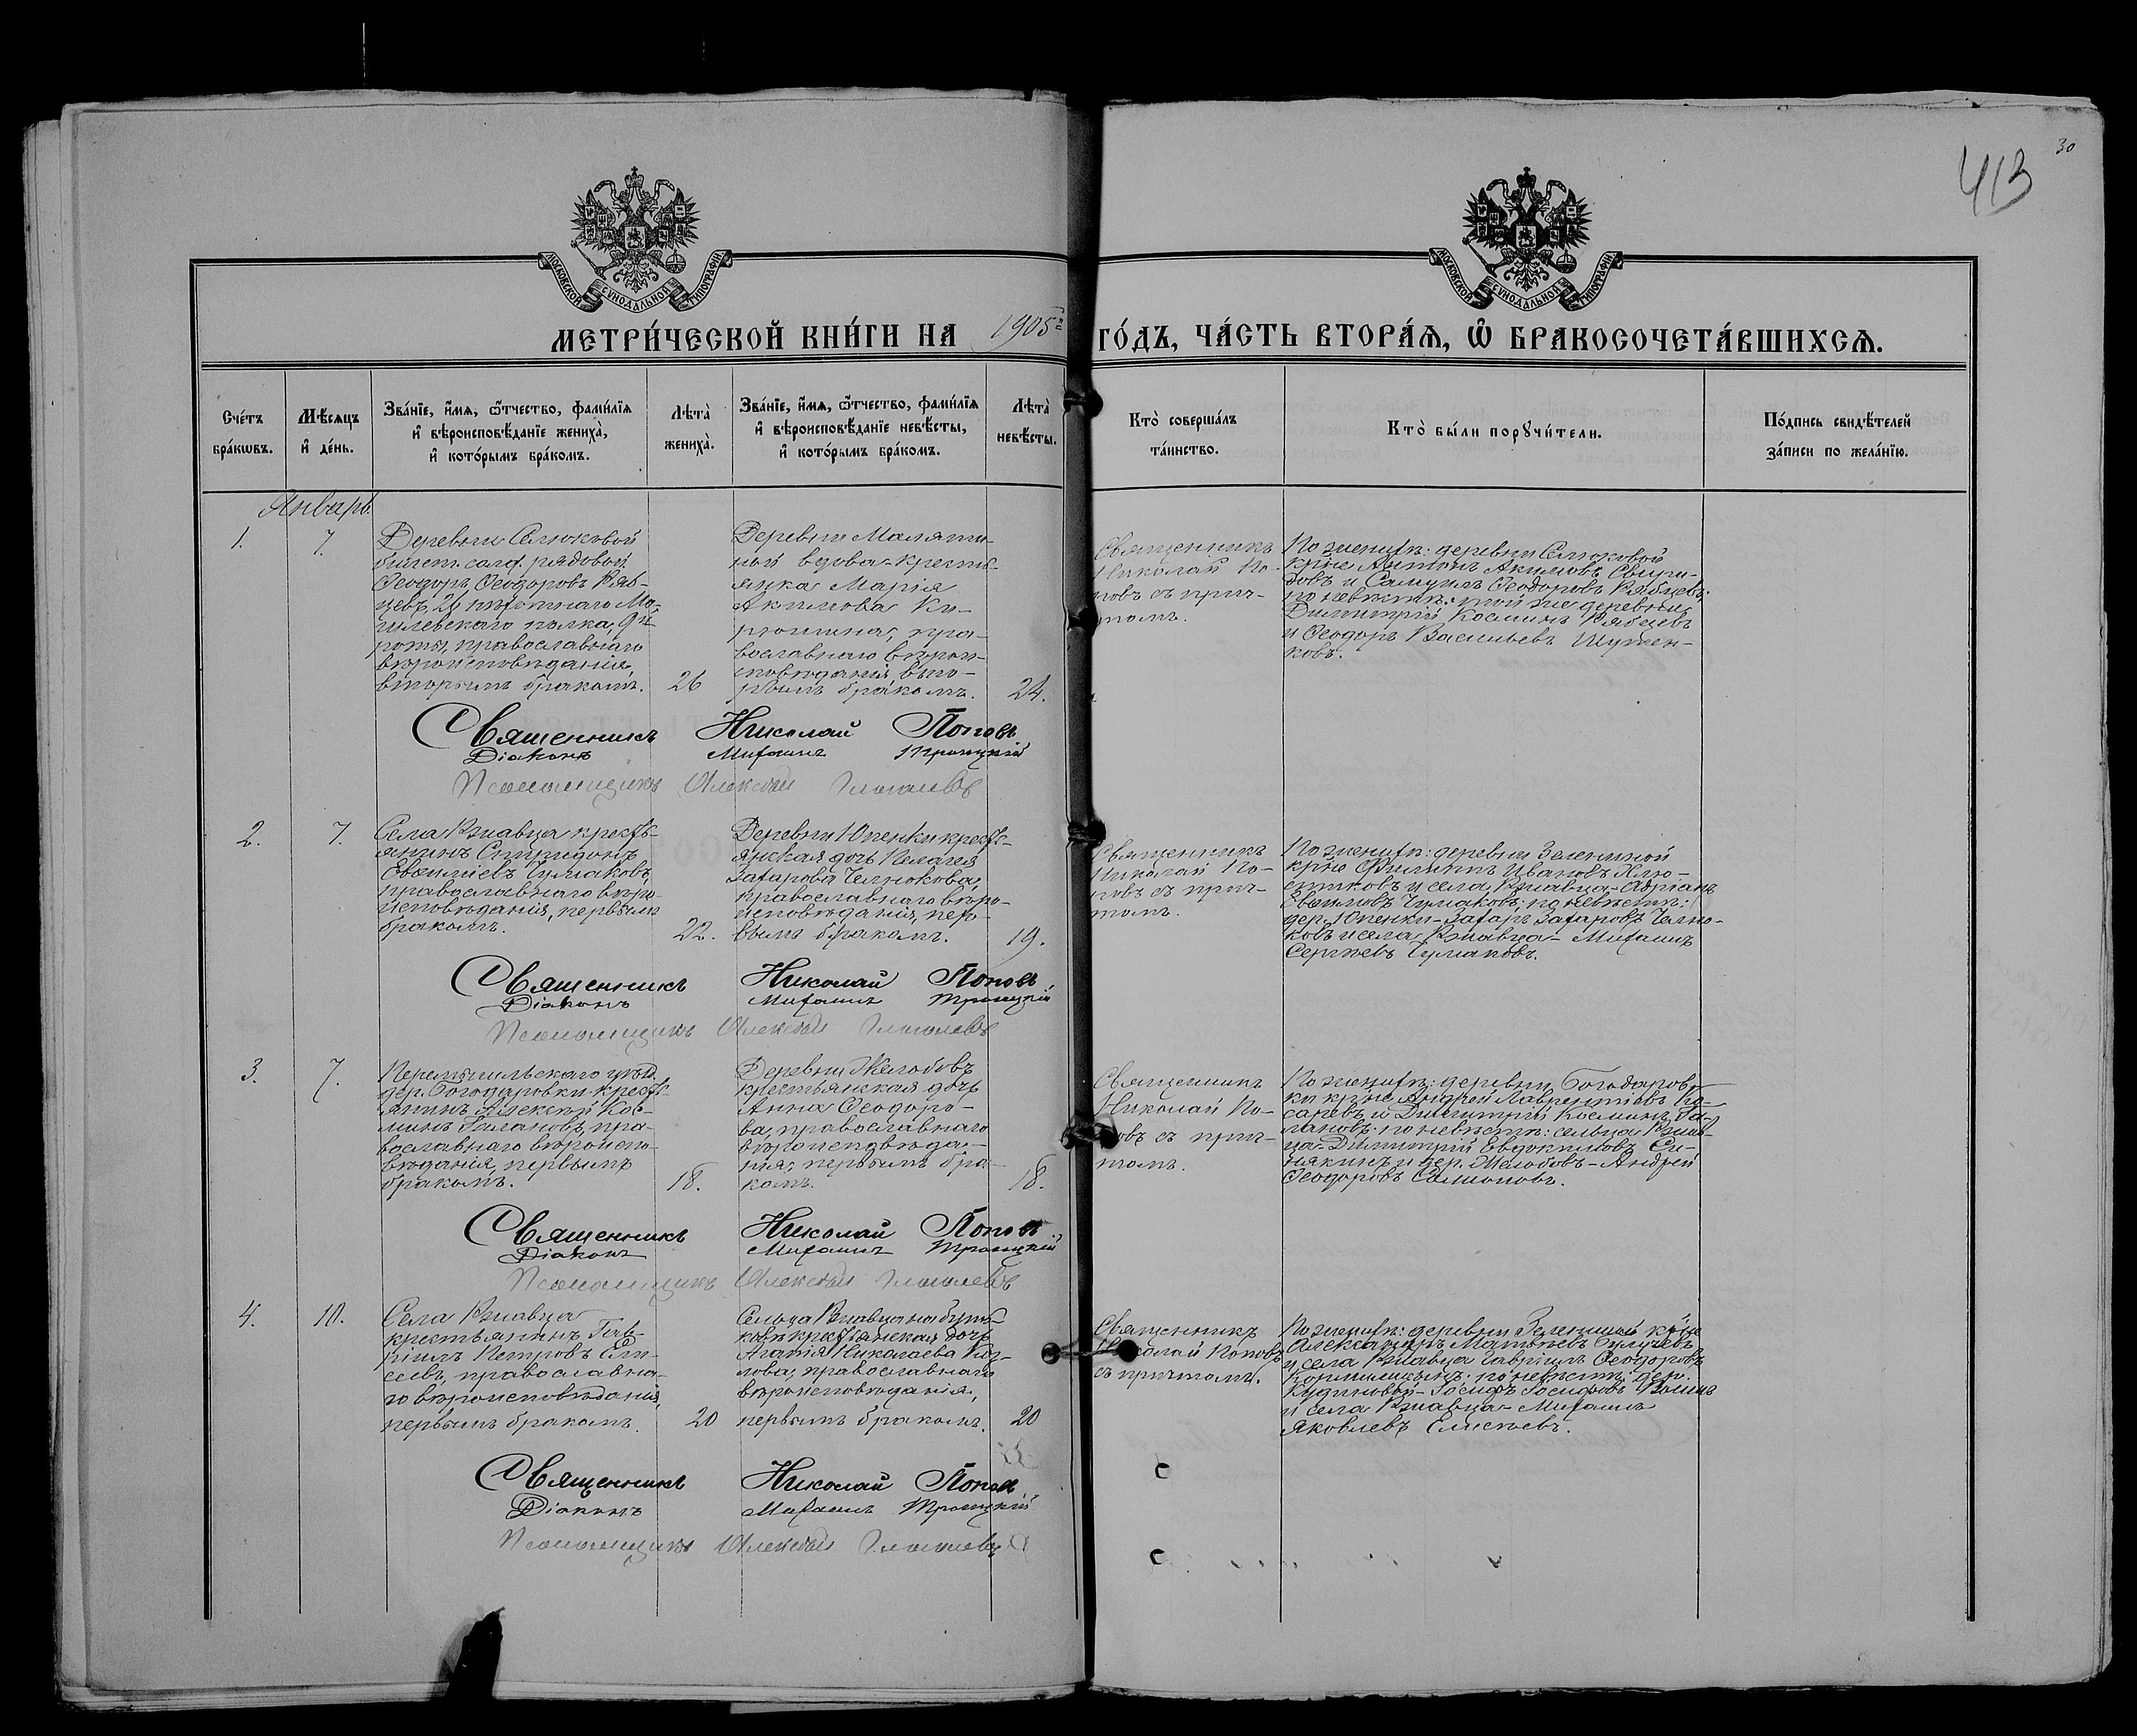 30
413
МОСКОВСКОЙ СѴНОДАЛЬНОЙ ТИПОГРАФІИ
МОСКОВСКОЙ СѴНОДАЛЬНОЙ ТИПОГРАФІИ
МЕТРИ́ЧЕСКОЙ КНИ́ГИ НА 1905 ГО́ДЪ, ЧА́СТЬ ВТОРА́Ѧ, Ѽ БРАКОСОЧЕТА́ВШИХСѦ.
Сче́тъ бра́кѡвъ.
Мѣ́сяцъ и҆ де́нь.
Зва́нїе, и҆́мя, ѻ҆́тчество, фами́лїя и҆ вѣроисповѣ́данїе жениха̀, и҆ кото́рымъ бра́комъ.
Лѣта̀ жениха̀.
Зва́нїе, и҆́мя, ѻ҆́тчество, фами́лїя и҆ вѣроисповѣ́данїе невѣ́сты, и҆ кото́рымъ бра́комъ.
Лѣта̀ невѣ́сты.
Кто̀ соверша́лъ та́инство.
Кто̀ бы́ли порꙋчи́тели.
По́дпись свидѣ́телей за́писи по жела́нїю.
Январь.
1.
7.
Деревни Селюковой
билет. солд. рядовой
Ѳеодоръ Ѳеодоровъ Ряб-
цевъ, 26 пѣхотнаго Мо-
гилевскаго полка,
роты, православнаго
вѣроисповѣданія,
вторымъ бракомъ.
26
Деревни Маляти-
ной вдова-кресть-
янка Марія
Акимова Ки-
рюхина, пра-
вославнаго вѣрои-
сповѣданія, вто-
рымъ бракомъ.
24.
Священникъ
Николай По-
повъ съ прич-
томъ.
По женихѣ: деревни Селюковой
кр-не Антонъ Акимовъ Свири-
довъ и Самуилъ Ѳеодоровъ Рябцевъ;
по невѣстѣ: той же деревни
Димитрій Космин Рябцевъ
и Ѳеодоръ Васильевъ Шутен-
ковъ.
Священникъ Николай Поповъ
Діаконъ Михаилъ Троицкій
Псаломщикъ Алексѣй Глаголевъ
2.
7.
Села Ржавца кресть-
янинъ Спиридонъ
Евсиліевъ Чумаковъ,
православнаго вѣро-
исповѣданія, первымъ
бракомъ.
22.
Деревни Юпенки кресть-
янская дочь Пелагея
Захарова Челюкова,
православнаго вѣро-
исповѣданія, пер-
вымъ бракомъ.
19.
Священникъ
Николай По-
повъ съ прич-
томъ.
По женихѣ: деревни Зелениной
кр-не Филиппъ Ивановъ Клю-
ептковъ и села Ржавца-Адріанъ
Евсиловъ Чумаковъ; по невѣстѣ:
дер. Юпенки-Захаръ Захаровъ Челю-
ковъ и села Ржавца- Михаилъ
Сергѣевъ Чумаковъ.
Священникъ Николай Поповъ
Діаконъ Михаилъ Троицкій
Псаломщикъ Алексѣй Глаголевъ
3.
7.
Перемышльскаго уѣзд.
дер. Богодаровки кресть-
янинъ Алексѣй Кос-
минъ Галановъ, пра-
вославнаго вѣроиспо-
вѣданія, первымъ
бракомъ.
18.
Деревни Желобовъ
крестьянская дочь
Анна Ѳеодоро-
ва, православнаго
вѣроисповѣда-
нія, первымъ бра-
комъ.
18.
Священникъ
Николай По-
повъ съ прич-
томъ.
По женихѣ: деревни Богодаров-
ки кр-не Андрей Лаврентіевъ Ко-
саревъ и Димитрій Косминъ Га-
лановъ; по невѣстѣ: сельца Ржав-
ца-Димитрій Евдокимовъ Си-
някинъ и дер. Желобовъ-Андрей
Ѳеодоровъ Салионовъ.
Священникъ Николай Поповъ
Діаконъ Михаилъ Троицкій
Псаломщикъ Алексѣй Глаголевъ
4.
10.
Села Ржавца
крестьянинъ Гав-
ріилъ Петровъ Ели-
сеевъ, православна-
го вѣроисповѣданія,
первымъ бракомъ.
20
Сельца Ржавца на
крестьянская дочь
Агапія Николаева Коз-
лова, православнаго
вѣроисповѣданія,
первымъ бракомъ.
20
Священникъ
Николай Поповъ
съ причтомъ.
По женихѣ: деревни Зелениной кр-не
Александръ Матвѣевъ Булычевъ
и села Ржавца Гавріилъ Ѳеодоровъ
Кормилицынъ; по невѣстѣ: дер.
Кудиновой-Іосифъ Іосифовъ
и села Ржавца-Михаилъ
Яковлевъ Елисѣевъ.
Священникъ Николай Поповъ
Діаконъ Михаилъ Троицкій
Псаломщикъ Алексѣй Глаголевъ